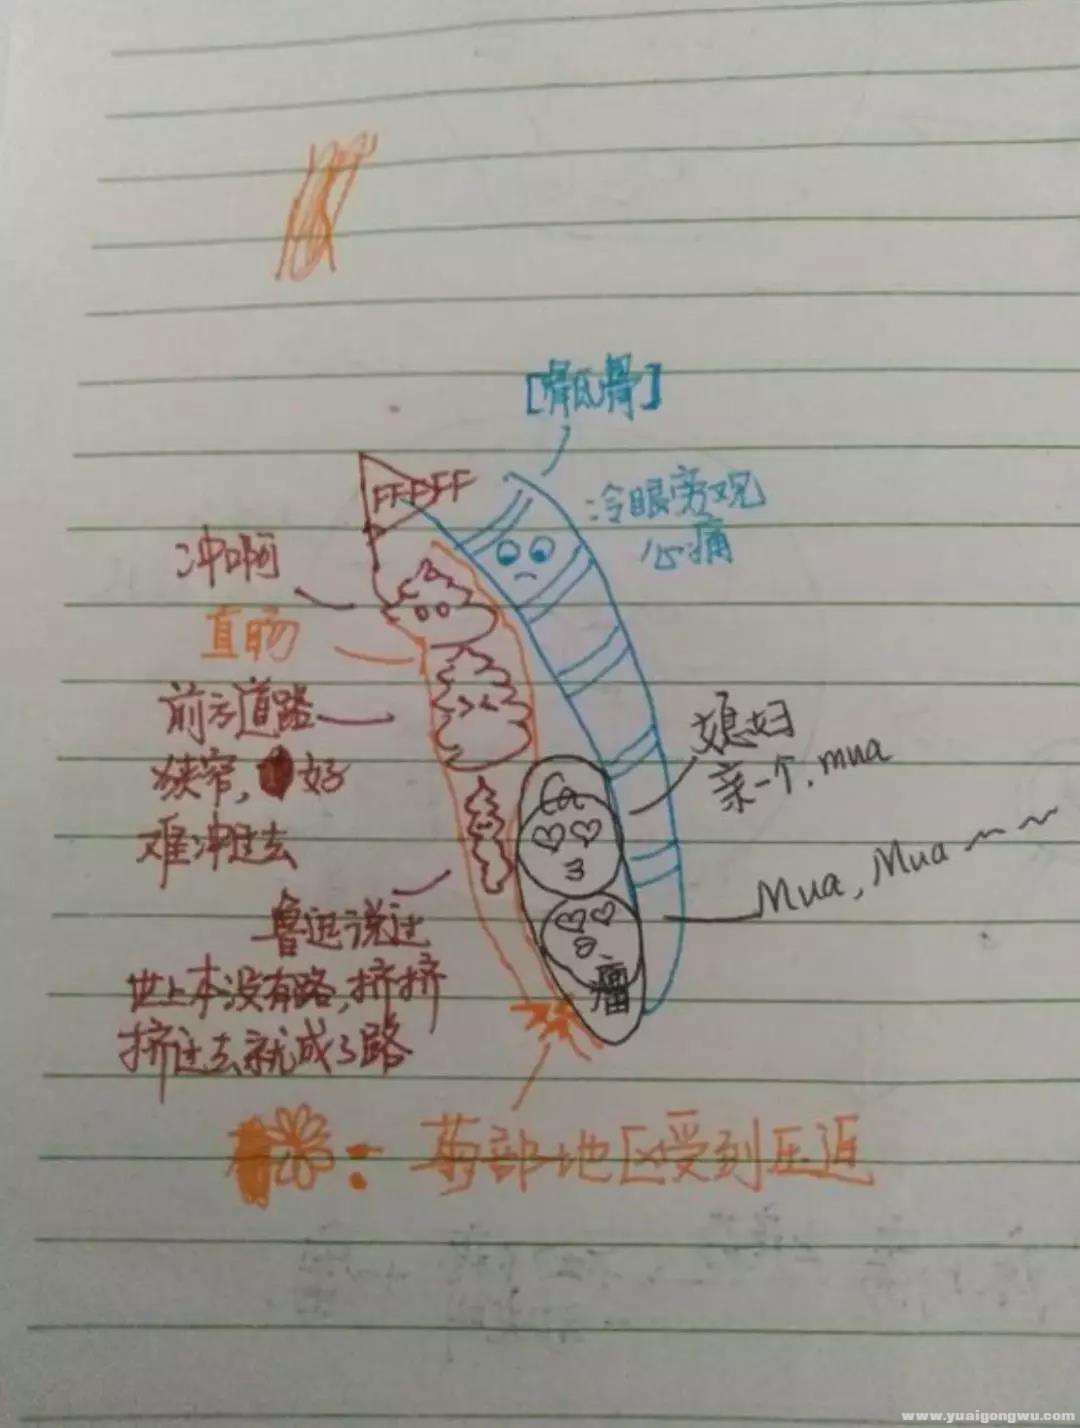 [骶骨]
FFFFFF
冷眼旁观
心痛
冲啊
直肠
前方道路
狭窄，好
难冲过去
媳妇
亲一个，mua
Mua, Mua～～
鲁迅说过
世上本没有路，挤挤
挤过去就成了路
瘤
：菊部地区受到压迫
www.yuaigongwu.com